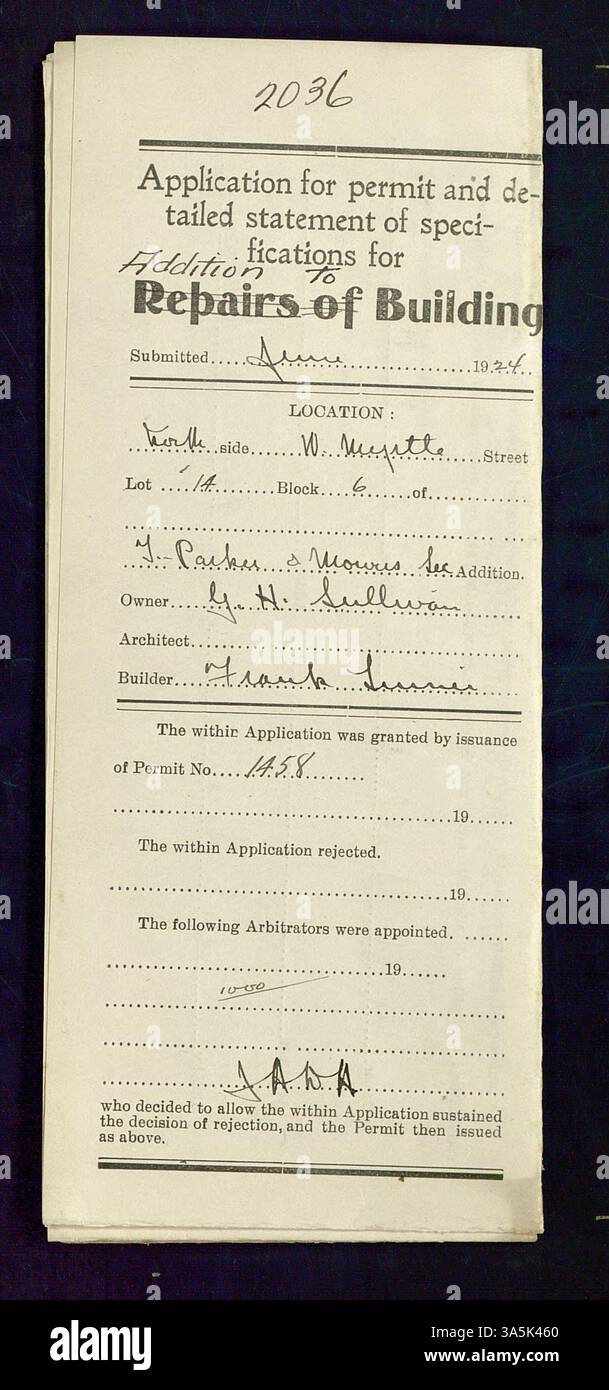 2036
Application for permit and de-
tailed statement of speci-
fications for
Addition to
Repairs of Building
Submitted.....June.....1924..
LOCATION :
North side W. Myrtle Street
Lot 14 Block 6 of
T. Parker & Mowris Sec Addition.
Owner H. Sullivan
Architect
Builder Frank
The within Application was granted by issuance
of Permit No. 1458
19
The within Application rejected.
19
The following Arbitrators were appointed.
19
1000
who decided to allow the within Application sustained
the decision of rejection, and the Permit then issued
as above.
alamy
Image ID: 3A5K460
www.alamy.com